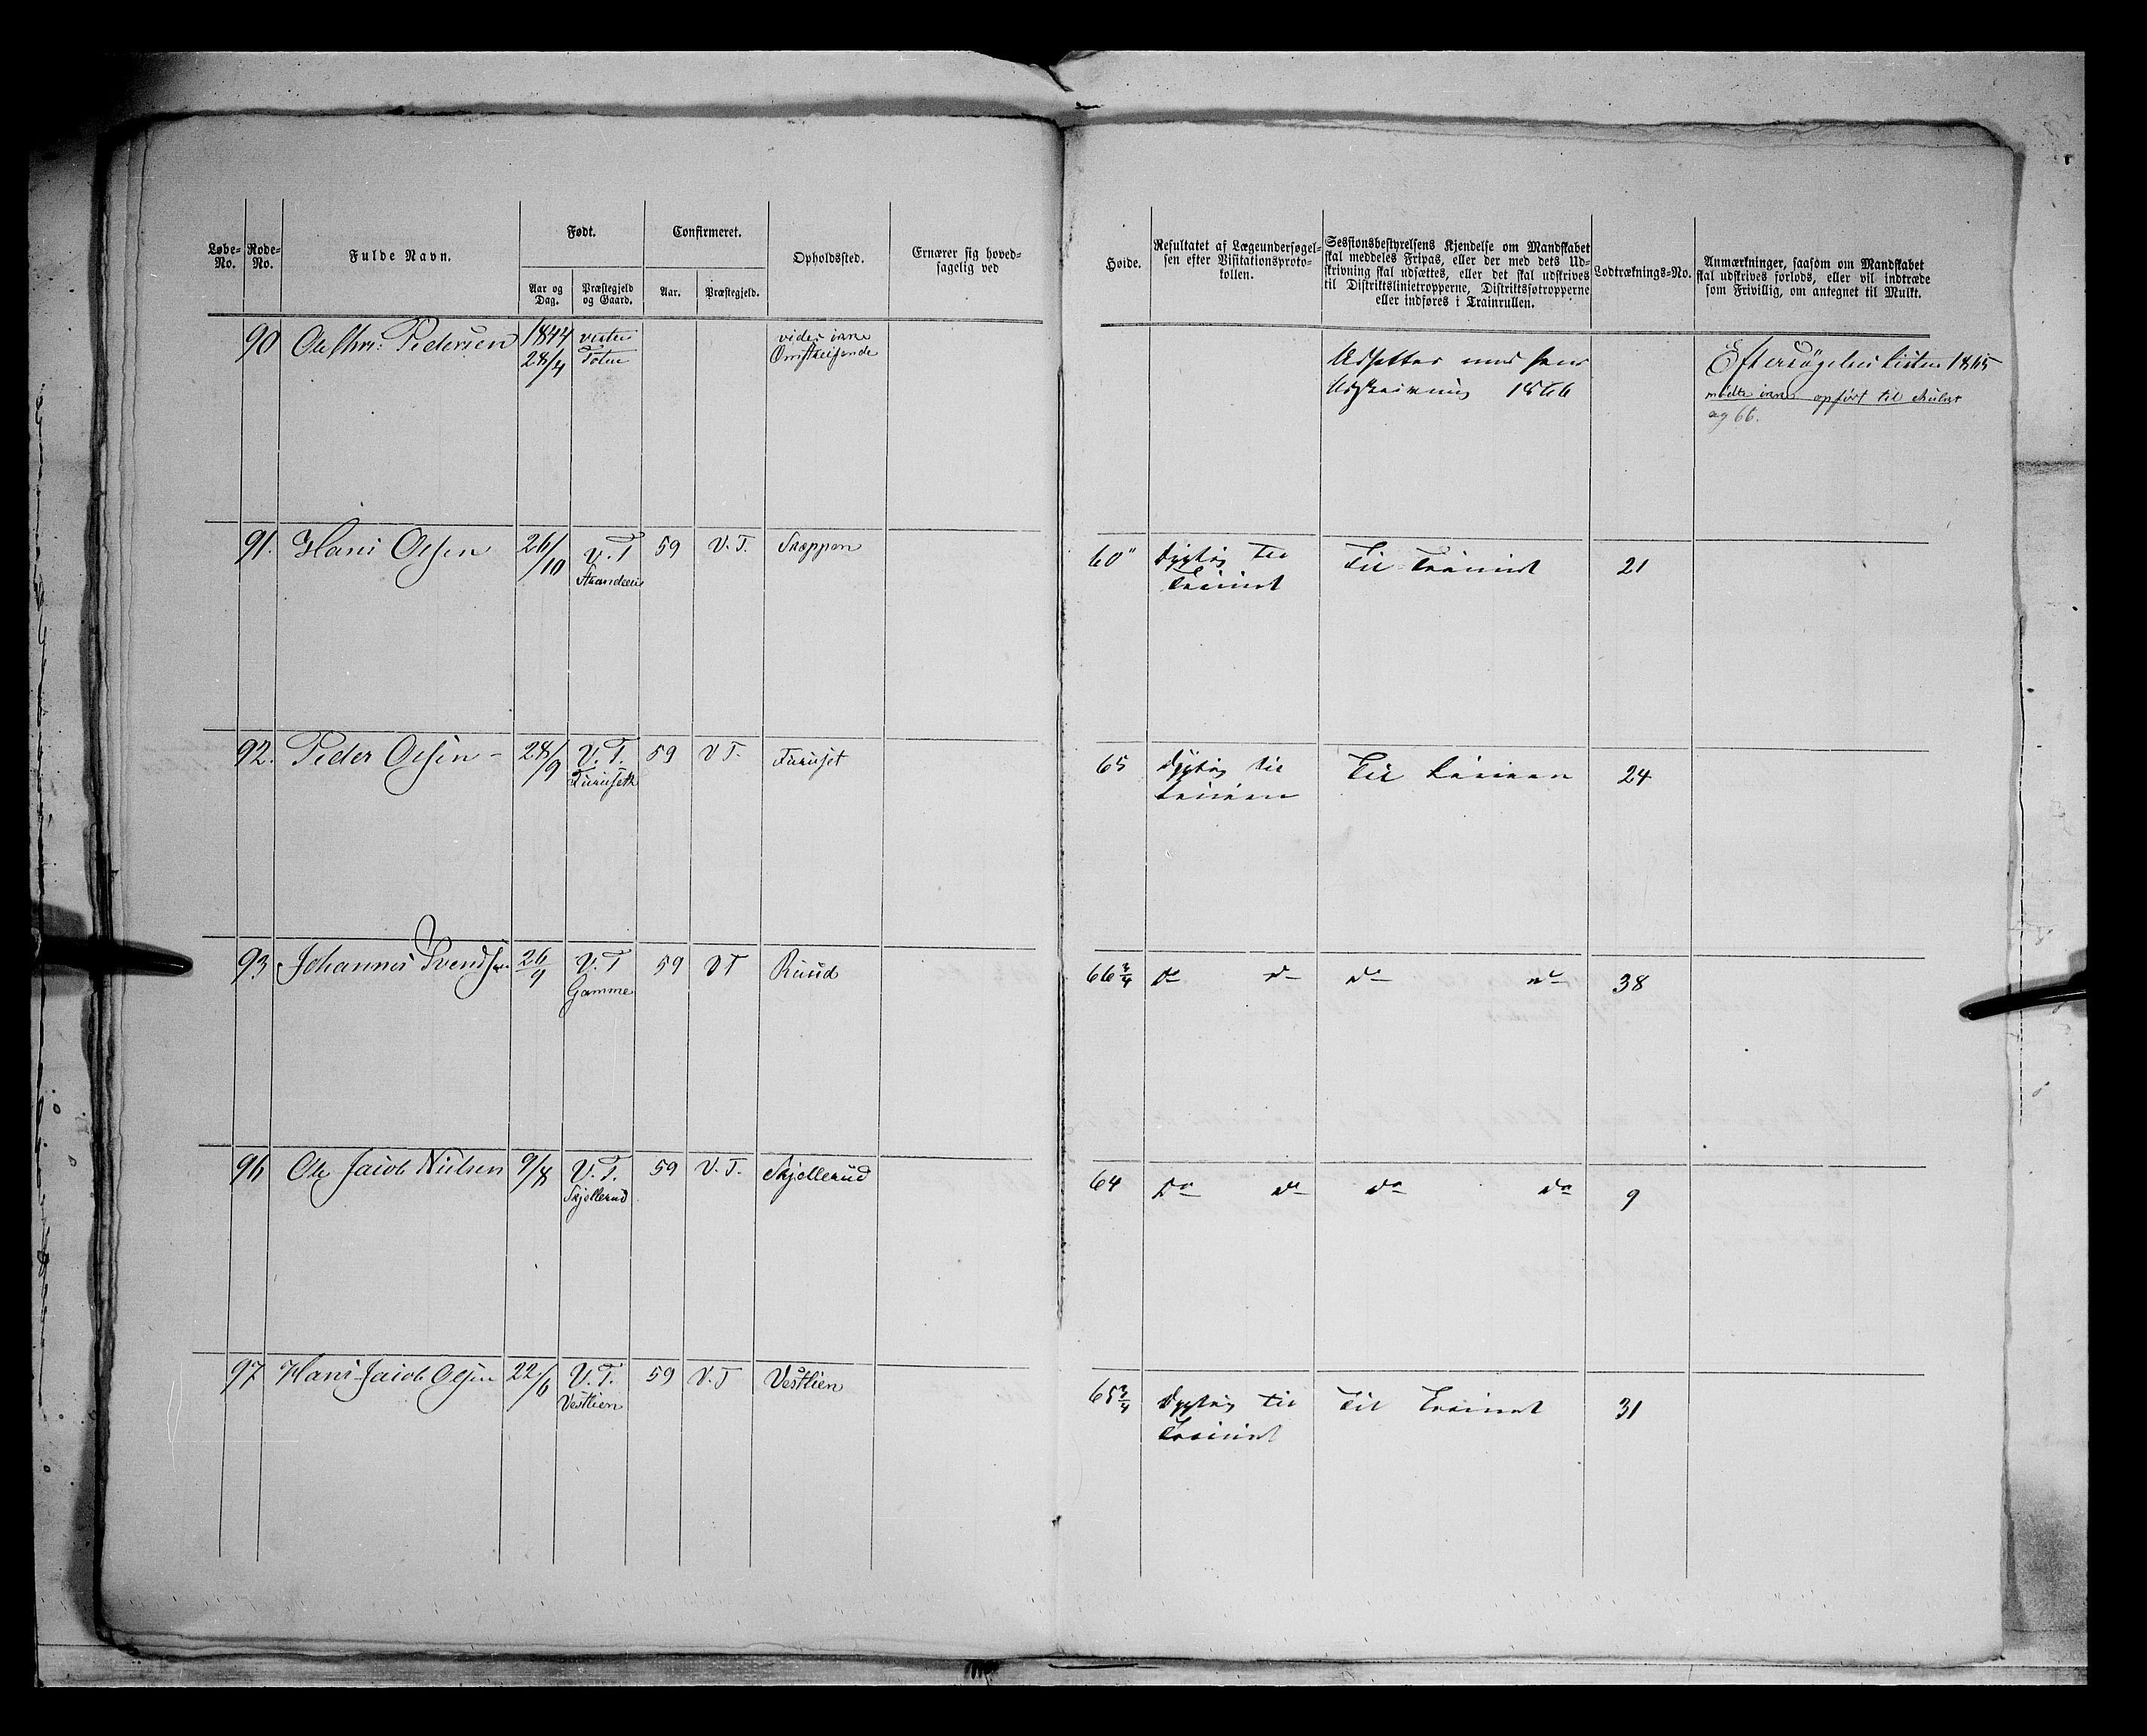 Løbe-No.
Rode-No.
Fulde Navn.
Født.
Aar og Dag.
Præstegjeld og Gaard.
Confirmeret.
Aar.
Præstegjeld.
Opholdssted.
Ernærer sig hoved-
sagelig ved
Høide.
Resultatet af Lægeundersøgel-
sen efter Visitationsproto-
kollen.
Sessionsbestyrelsens Kjendelse om Mandskabet
skal meddeles Fripas, eller der med dets Ud-
skrivning skal udsættes, eller det skal udskrives
til Distriktslinietropperne, Distriktsfotropperne
eller indføres i Trainrullen.
Lodtræknings-No.
Anmærkninger, saasom om Mandskabet
skal udskrives forlods, eller vil indtræde
som Frivillig, om antegnet til Mulkt.
90 Ole Chr: Pedersen 1844 vestre
28/4 Toten
vides inne
Omstreifende
Udsættes med hans
Udskrivning 1866
Eftersøgelses Listen 1865
mödte inne opfört til Mulct
og 66.
91. Hans Olsen 26/10 V. T 59 V. T.
60" Dygtig til
Trainet
Til Trainet 21
92. Peder Olsen - 28/9 V. T. 59 V T. Furuset
Furuseth
65 Dygtig til
Linien
Til Linien 24
93 Johannes Svendsen 26/9 V. T 59 V T Ruud
Gamme
66 3/4 Do do do do 38
96 Ole Jacob Nielsen 9/8 V. T. 59 V. T. Skjellerud
Skjellerud
64 Do do do do 9
97 Hans Jacob Olsen 22/6 V. T. 59 V. T Vestlien
Vestlien
65 3/4 Dygtig til
Trainet
Til Trainet 31